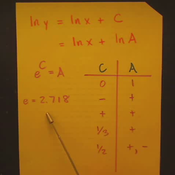 ln y = ln x + C
= ln x + ln A
e^C = A
e = 2.718
C A
0 1
- +
+ +
1/3 +
1/2 +, -